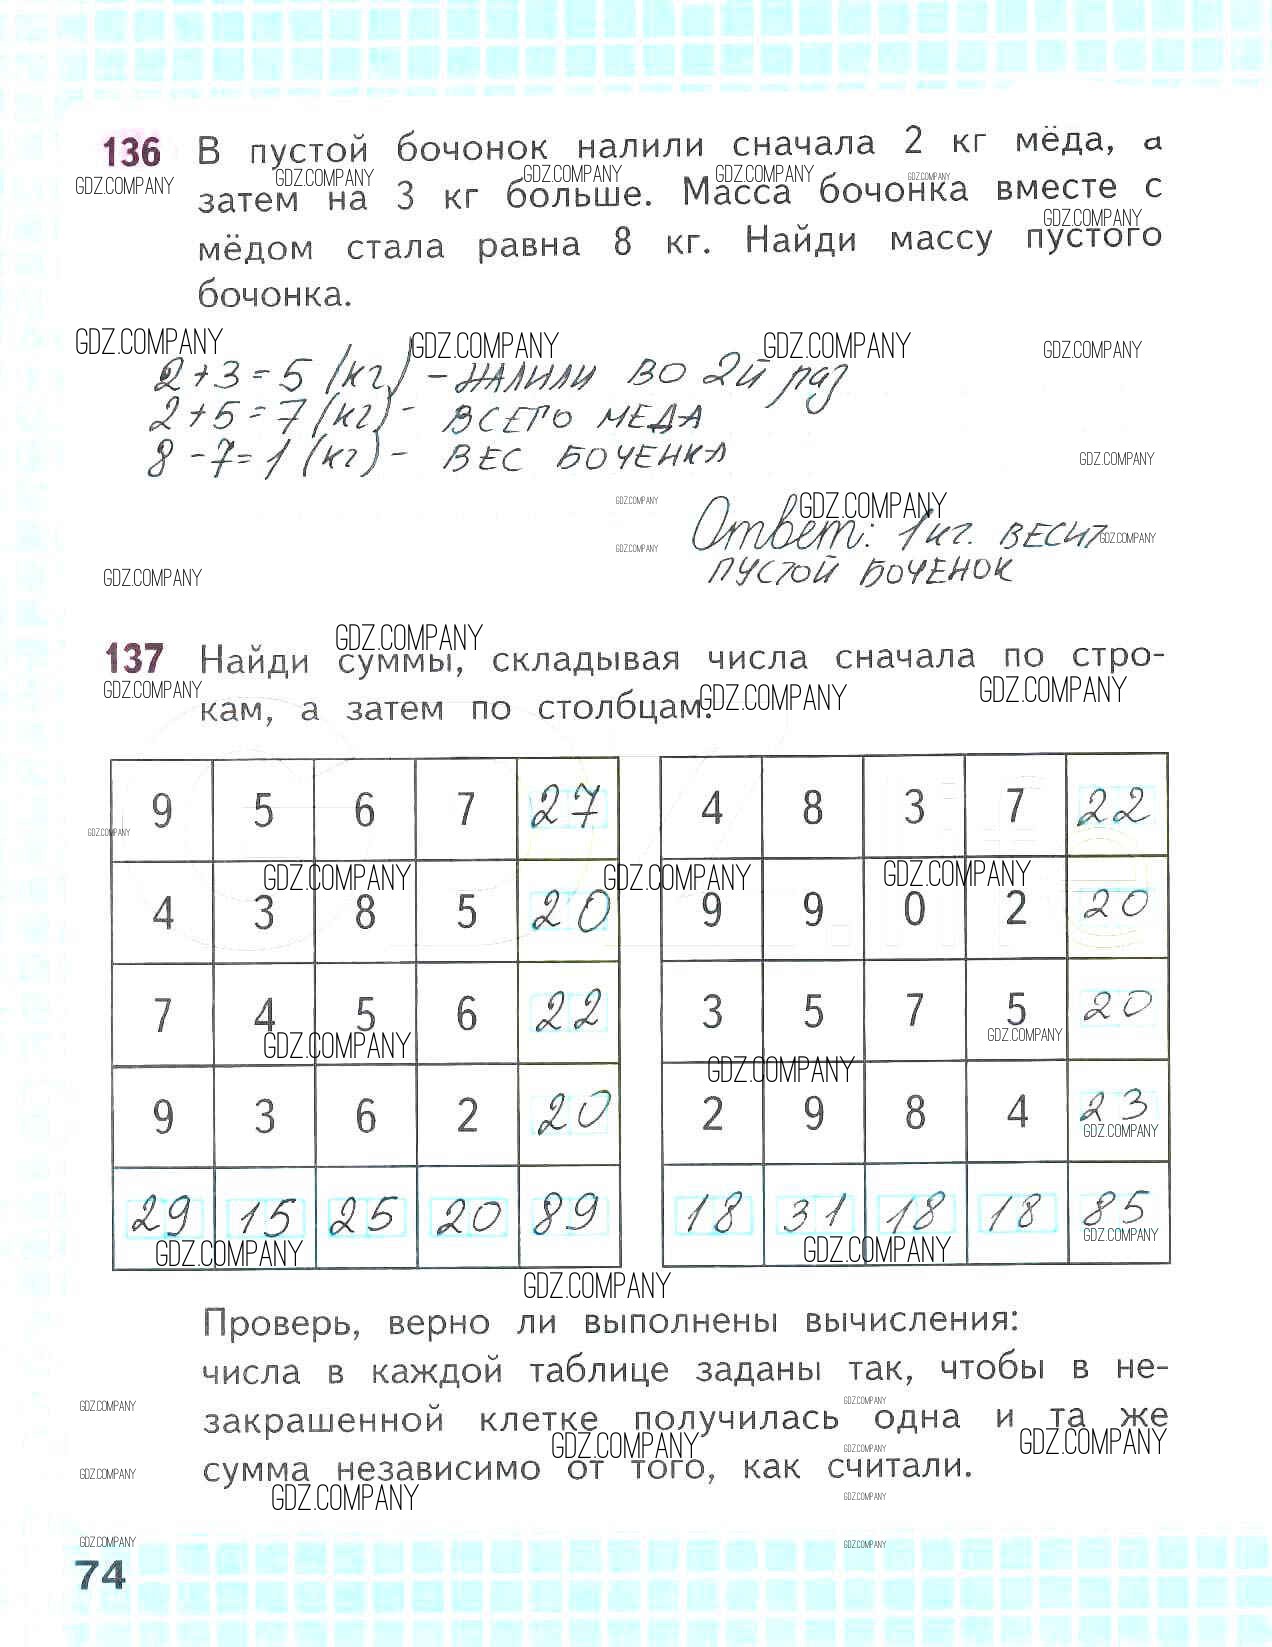 136 В пустой бочонок налили сначала 2 кг мёда, а
затем на 3 кг больше. Масса бочонка вместе с
мёдом стала равна 8 кг. Найди массу пустого
бочонка.
2+3=5 (кг) - НАЛИЛИ ВО 2й раз
2+5=7 (кг) - ВСЕГО МЕДА
8-7=1 (кг) - ВЕС БОЧЕНКА
Ответ: 1 кг. ВЕСИТ
ПУСТОЙ БОЧЕНОК
137 Найди суммы, складывая числа сначала по стро-
кам, а затем по столбцам.
9 5 6 7 27 4 8 3 7 22
4 3 8 5 20 9 9 0 2 20
7 4 5 6 22 3 5 7 5 20
9 3 6 2 20 2 9 8 4 23
29 15 25 20 89 18 31 18 18 85
Проверь, верно ли выполнены вычисления:
числа в каждой таблице заданы так, чтобы в не-
закрашенной клетке получилась одна и та же
сумма независимо от того, как считали.
74
GDZ.COMPANY